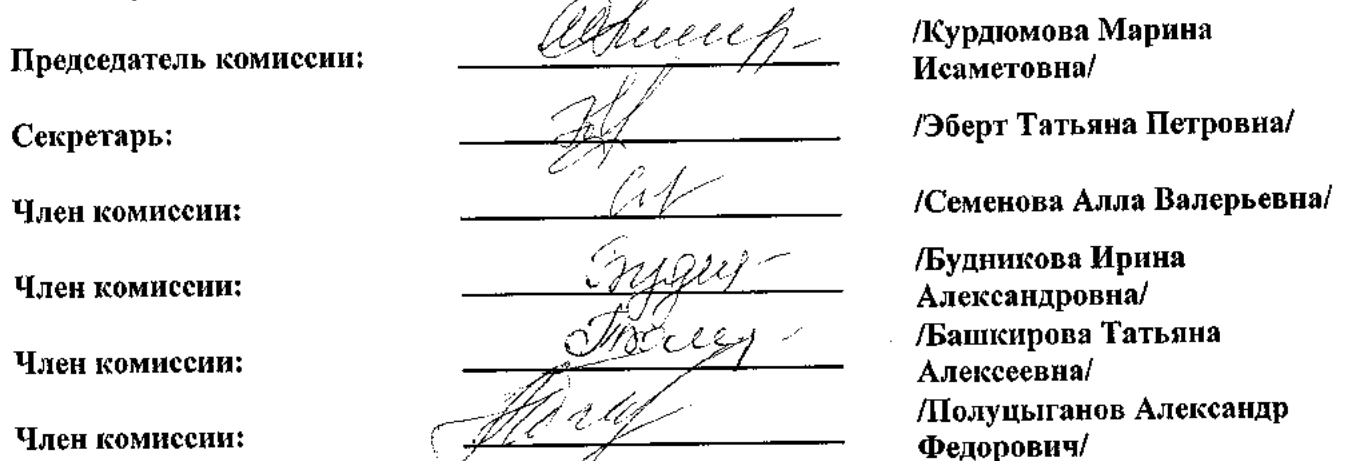 Председатель комиссии: /Курдюмова Марина
Исаметовна/
Секретарь: /Эберт Татьяна Петровна/
Член комиссии: /Семенова Алла Валерьевна/
Член комиссии: /Будникова Ирина
Александровна/
Член комиссии: /Башкирова Татьяна
Алексеевна/
Член комиссии: /Полуцыганов Александр
Федорович/